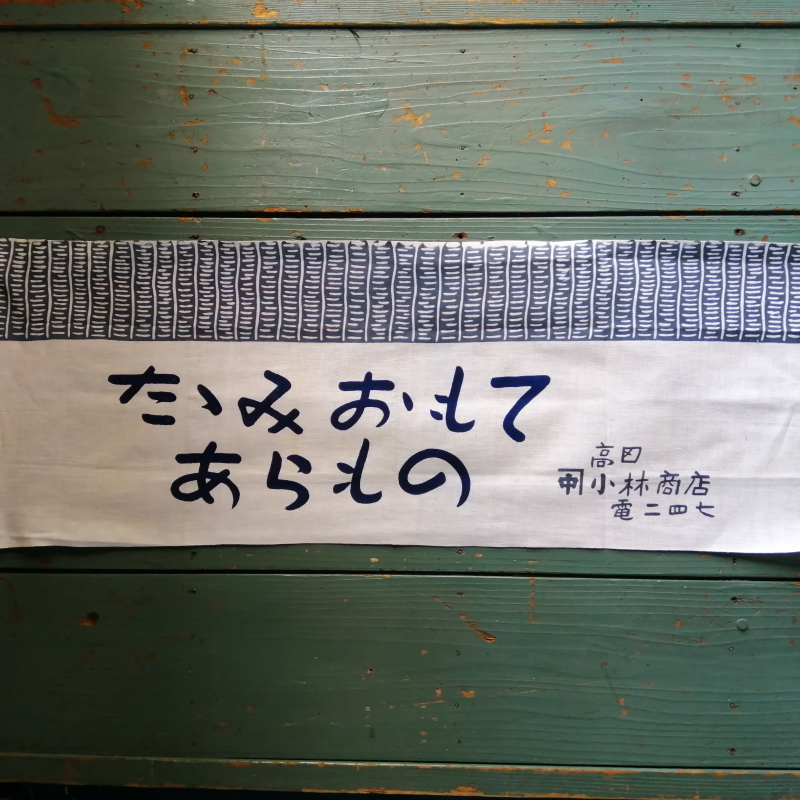 たゝみおもて
あらもの
高田
小林商店
電二四七